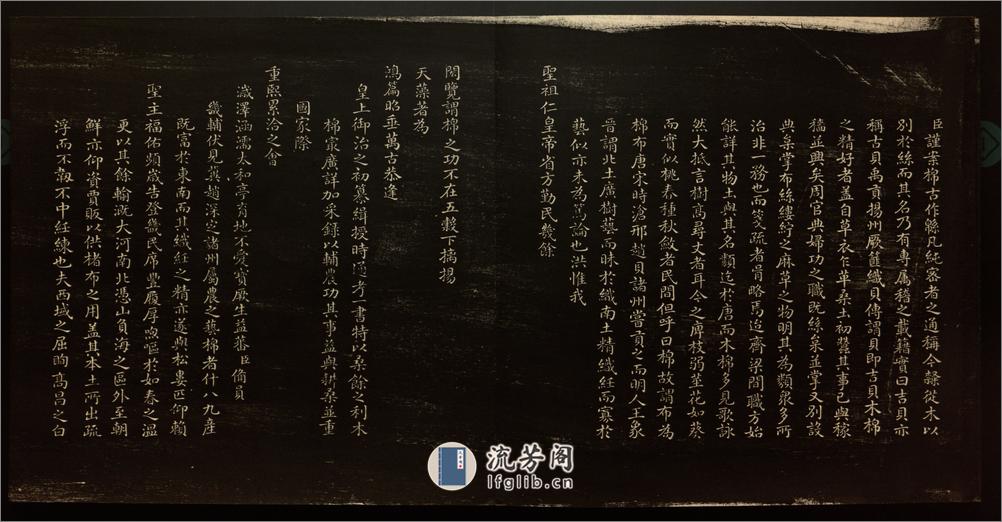 臣謹案棉古作緜凡純密者之通稱今隸從木以
別於絲而其名乃有專屬稽之載籍實曰吉貝亦
稱古貝禹貢揚州厥篚織貝傳謂貝即吉貝木棉
之精好者蓋自草衣乍革桑土初蠶其事已與稼
穡並興矣周官典婦功之職既絲枲並掌又別設
典枲掌布緦縷紵之麻草之物明其為類衆多所
治非一務也而箋疏者員略焉迨齊梁間職方始
能詳其物土與其名類迄於唐而木棉多見歌詠
然大抵言樹高尋丈者耳今之庳枝弱莖花如葵
而實似桃春種秋斂者民間但呼曰棉故謂布為
棉布唐宋時滄邢趙貝諸州嘗貢之而明人王象
晉謂北土廣樹藝而昧於織南土精織紝而寡於
藝似亦未為篤論也洪惟我
聖祖仁皇帝省方勤民幾餘
閱覽謂棉之功不在五穀下摛揚
天藻著為
鴻篇昭垂萬古恭逢
皇上御治之初纂緝授時通考一書特以桑餘之利木
棉家廣詳加采錄以輔農功其事益與耕桑並重
國家際
重熙累洽之會
滋澤涵濡太和亭育地不愛寶厥生益蕃臣備員
畿輔伏見冀趙深定諸州屬農之藝棉者什八九產
既富於東南而其織紝之精亦遂與松婁匹仰賴
聖主福佑頻歲告登畿民席豐履厚喣嫗於如春之溫
更以其餘輸溉大河南北憑山負海之區外至朝
鮮亦仰資賈販以供楮布之用蓋其本土所出疏
浮而不韌不中紝練也夫西域之屈眴高昌之白